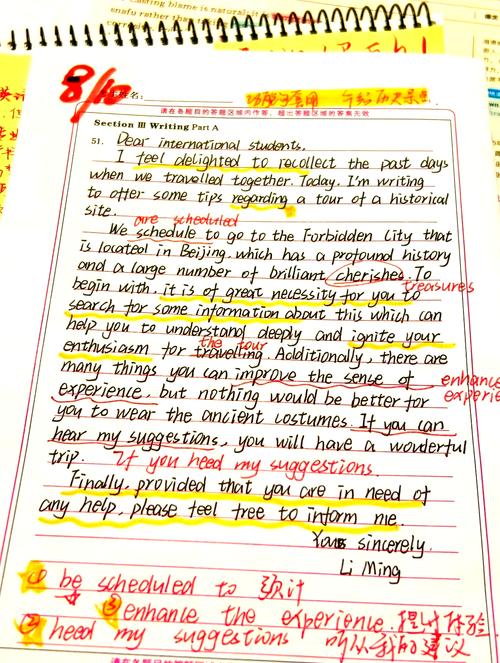 8/10
名:
请在各题目的答题区域内作答，超出答题区域的答案无效
Section III Writing Part A
51. Dear international students,
I feel delighted to recollect the past days
when we travelled together. Today, I'm writing
to offer some tips regarding a tour of a historical
site.
are scheduled
We schedule to go to the Forbidden City that
is located in Beijing, which has a profound history
and a large number of brilliant cherishes. To
treasures
begin with, it is of great necessity for you to
search for some information about this which can
help you to understand deeply and ignite your
the tour
enthusiasm for travelling. Additionally, there are
many things you can improve the sense of
enhance
experience, but nothing would be better for
you to wear the ancient costumes. If you can
hear my suggestions, you will have a wonderful
trip. If you heed my suggestions.
Finally, provided that you are in need of
any help, please feel free to inform me.
Yours sincerely.
Li Ming
① be scheduled to 预计
③ enhance the experience. 提升体验
② heed my suggestions 听从我的建议